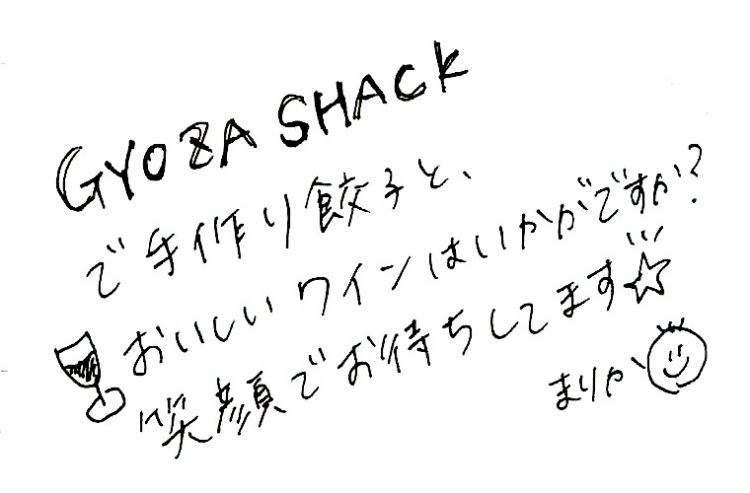 GYOZA SHACK
で手作り餃子と、
おいしいワインはいかがですか?
笑顔でお待ちしてます☆
まりか